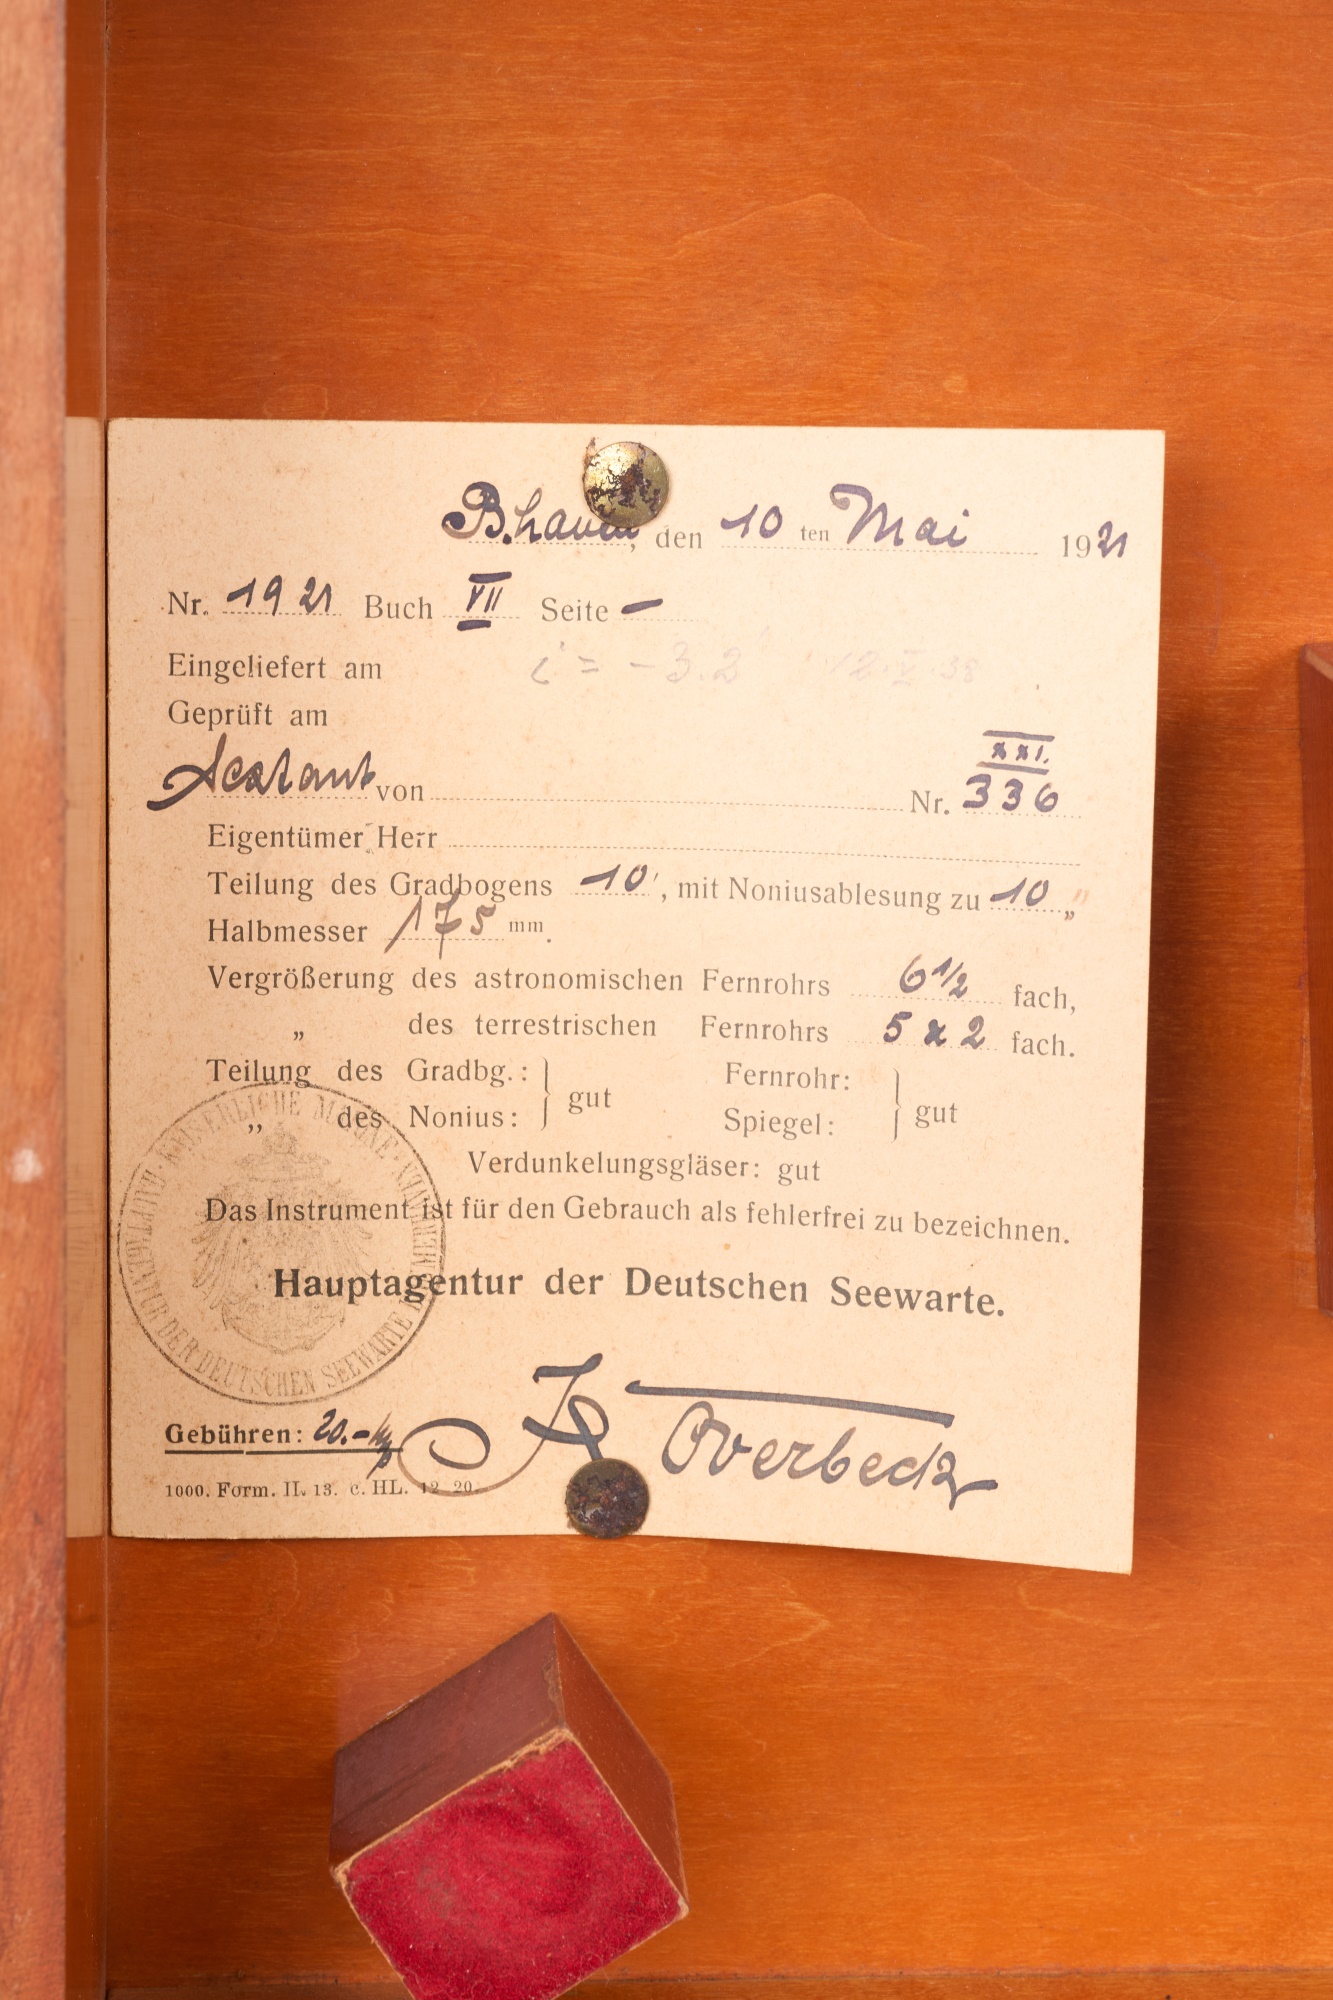 B.haven, den 10 ten Mai 1921
Nr. 1921 Buch VII Seite –
Eingeliefert am i = -3.2 12.V.38
Geprüft am
XXI.
Sextant von Nr. 336
Eigentümer Herr
Teilung des Gradbogens 10', mit Noniusablesung zu 10 "
Halbmesser 175 mm.
Vergrößerung des astronomischen Fernrohrs 6 1/2 fach,
„ des terrestrischen Fernrohrs 5 x 2 fach.
Teilung des Gradbg.: } gut Fernrohr: } gut
„ des Nonius: Spiegel:
Verdunkelungsgläser: gut
Das Instrument ist für den Gebrauch als fehlerfrei zu bezeichnen.
Hauptagentur der Deutschen Seewarte.
KAISERLICHE MARINE · HAUPTAGENTUR DER DEUTSCHEN SEEWARTE
Overbeck
Gebühren: 20.–
1000. Form. II. 13. c. HL. 12 20.